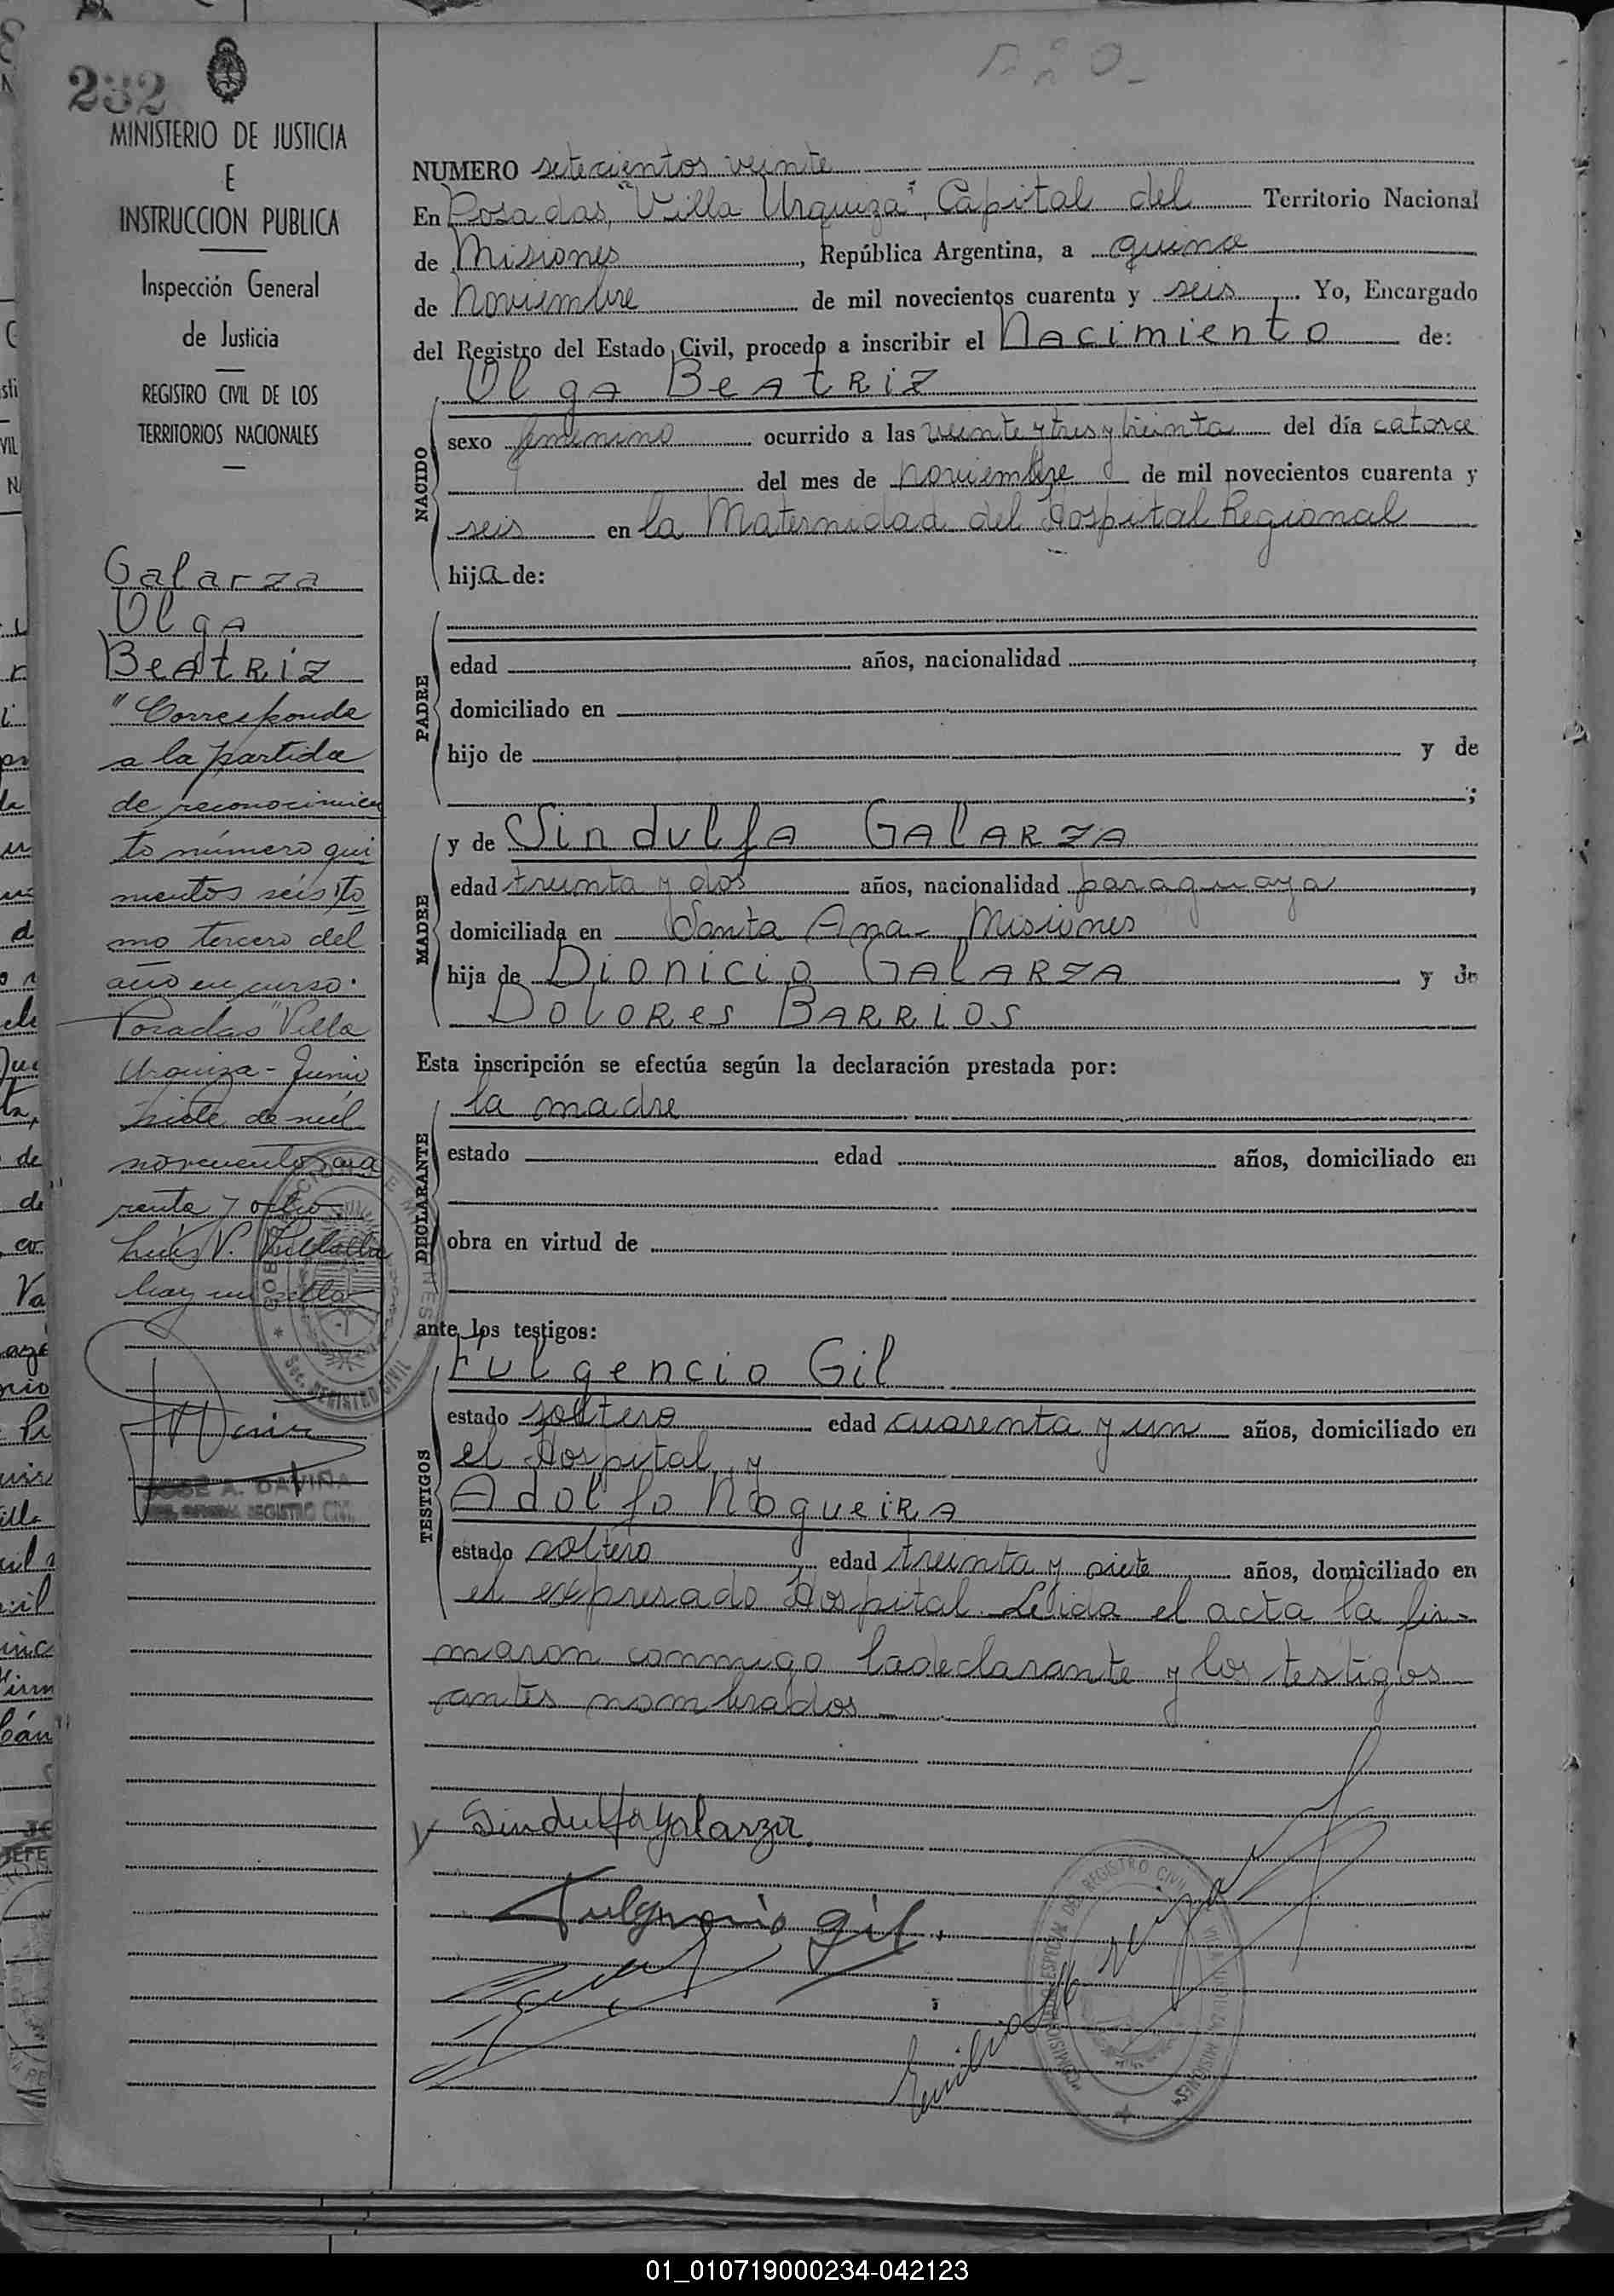 720-
232
MINISTERIO DE JUSTICIA
E
INSTRUCCION PUBLICA
Inspección General
de Justicia
REGISTRO CIVIL DE LOS
TERRITORIOS NACIONALES
Galarza
Olga
Beatriz
"Corresponde
a la partida
de reconocimien
to número qui
nientos seis to
mo tercero del
año en curso.
Posadas "Villa
Urquiza - Junio
siete de mil
novecientos cua
renta y ocho
Luis V.
hay un sello
JOSÉ A. DAVIÑA
REGISTRO CIVIL
NUMERO setecientos veinte
En Posadas, "Villa Urquiza", Capital del Territorio Nacional
de Misiones, República Argentina, a quince
de Noviembre de mil novecientos cuarenta y seis. Yo, Encargado
del Registro del Estado Civil, procedo a inscribir el Nacimiento de:
Olga Beatriz
NACIDO
sexo femenino ocurrido a las veinte y tres y treinta del día catorce
del mes de noviembre de mil novecientos cuarenta y
seis en la Maternidad del Hospital Regional
hija de:
PADRE
edad años, nacionalidad ,
domiciliado en
hijo de y de
;
MADRE
y de Sindulfa Galarza
edad treinta y dos años, nacionalidad paraguaya ,
domiciliada en Santa Ana - Misiones
hija de Dionicio Galarza y de
Dolores Barrios
Esta inscripción se efectúa según la declaración prestada por:
DECLARANTE
la madre
estado edad años, domiciliado en
obra en virtud de
ante los testigos:
TESTIGOS
Fulgencio Gil
estado soltero edad cuarenta y un años, domiciliado en
el Hospital y
Adolfo Nogueira
estado soltero edad treinta y siete años, domiciliado en
el expresado Hospital. Leida el acta la fir-
maron conmigo la declarante y los testigos
antes nombrados -
Sindulfa Galarza.
Fulgencio Gil.
REGISTRO CIVIL
01_010719000234-042123